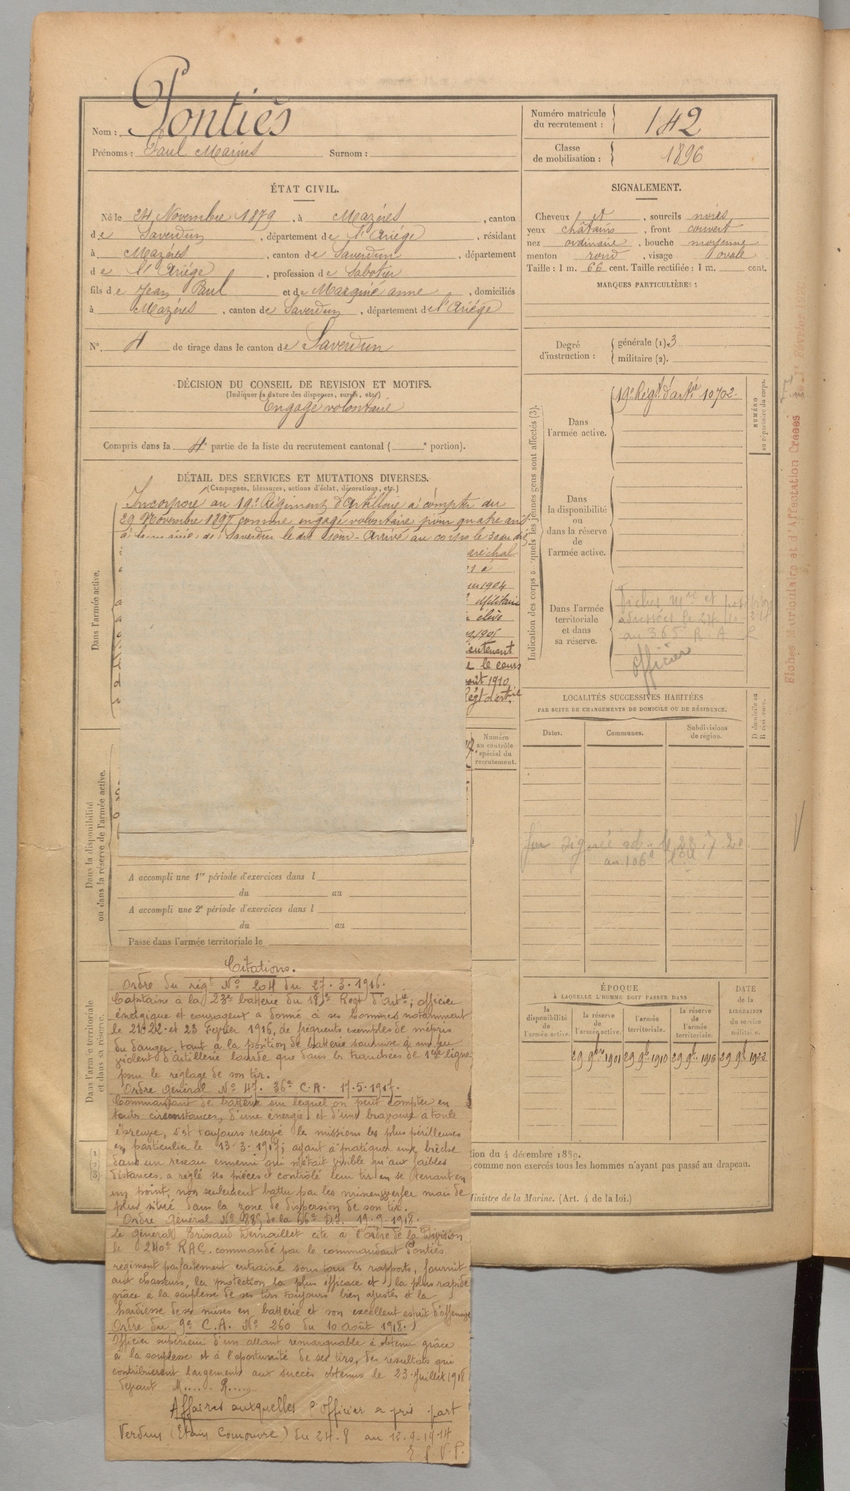 Nom : Pontiès
Prénoms : Paul Marius Surnom :
Numéro matricule du recrutement : 142
Classe de mobilisation : 1896
ÉTAT CIVIL.
Né le 24 Novembre 1879, à Mazères, canton
de Saverdun, département de l'Ariège, résidant
à Mazères, canton de Saverdun, département
de l'Ariège, profession de Sabotier
fils de Jean Paul et de Marquié anne, domiciliés
à Mazères, canton de Saverdun, département de l'Ariège
N° 4 de tirage dans le canton de Saverdun
SIGNALEMENT.
Cheveux et, sourcils noirs
yeux châtains, front couvert
nez ordinaire, bouche moyenne
menton rond, visage ovale
Taille : 1 m. 66 cent. Taille rectifiée : 1 m. cent.
MARQUES PARTICULIÈRES :
Degré d'instruction : générale (1). 3
militaire (2).
DÉCISION DU CONSEIL DE REVISION ET MOTIFS.
(Indiquer la nature des dispenses, sursis, etc.)
Engagé volontaire
Compris dans la 4e partie de la liste du recrutement cantonal ( e portion).
DÉTAIL DES SERVICES ET MUTATIONS DIVERSES.
(Campagnes, blessures, actions d'éclat, décorations, etc.)
Incorporé au 19e Régiment d'Artillerie à compter du
29 Novembre 1897 comme engagé volontaire pour quatre ans
à la mairie de Saverdun le dit jour. Arrivé au corps le
Dans l'armée active.
1904
Militaire
élève
1905
lieutenant
le cours
août 1910
Régt d'artie
Indication des corps auxquels les jeunes gens sont affectés (3).
Dans l'armée active.
19e Régt d'artie 10702
NUMÉRO au répertoire du corps.
Dans la disponibilité ou dans la réserve de l'armée active.
Dans l'armée territoriale et dans sa réserve.
au 365 R.A
officier
Fiches Matriculaire et d'Affectation Créées
LOCALITÉS SUCCESSIVES HABITÉES
PAR SUITE DE CHANGEMENTS DE DOMICILE OU DE RÉSIDENCE.
Dates. Communes. Subdivisions de région. D domicile ou R résidence.
au 106e
Numéro au contrôle spécial du recrutement.
Dans la disponibilité ou dans la réserve de l'armée active.
A accompli une 1re période d'exercices dans l
du au
A accompli une 2e période d'exercices dans l
du au
Passé dans l'armée territoriale le
Dans l'armée territoriale et dans sa réserve.
ÉPOQUE
À LAQUELLE L'HOMME DOIT PASSER DANS
la disponibilité de l'armée active. la réserve de l'armée active. l'armée territoriale. la réserve de l'armée territoriale.
DATE de la LIBÉRATION du service militaire.
29 9bre 1901 29 9b 1910 29 9b 1916 29 9b 1922
tion du 4 décembre 1889.
comme non exercés tous les hommes n'ayant pas passé au drapeau.
Ministre de la Marine. (Art. 4 de la loi.)
Citations.
Ordre du régt N° 204 du 27-3-1916.
Capitaine à la 23e batterie du 18e Régt d'artie, officier
énergique et courageux a donné à ses hommes notamment
le 21-22 et 23 Février 1916, de fréquents exemples de mépris
du danger, tant à la position de batterie soumise à un feu
violent d'artillerie lourde que dans les tranchées de 1ère ligne
pour le réglage de son tir.
Ordre Général N° 47. 36e C.A. 17-5-1917.
Commandant de batterie sur lequel on peut compter en
toute circonstance, d'une énergie et d'une bravoure à toute
épreuve, s'est toujours réservé les missions les plus périlleuses
en particulier le 13-3-1917; ayant à pratiquer une brèche
dans un réseau ennemi qui n'était visible qu'aux faibles
distances, a réglé ses pièces et contrôlé leur tir en se tenant en
un point, non seulement battu par les minenwerfer mais de
plus situé dans la zone de dispersion de son tir.
Ordre Général N° de la 66e D.I. 19-9-1918.
Le général Brissaud Desmaillet cite à l'ordre de la Division
le 240e RAC. commandé par le commandant Pontiès
régiment parfaitement entraîné sous tous les rapports, fournit
aux chasseurs, la protection la plus efficace et la plus rapide
grâce à la souplesse de ses tirs toujours bien ajustés et la
hardiesse de ses mises en batterie et son excellent esprit d'offensive
Ordre du 9e C.A. N° 260 du 10 août 1918.
Officier supérieur d'un allant remarquable a obtenu grâce
à la souplesse et à l'opportunité de ses tirs, des résultats qui
contribuèrent largement aux succès obtenus le 23 Juillet 1918
devant M..... R.....
Affaires auxquelles l'officier a pris part
Verdun (Etain ) du 24-8 au 12-9-1914